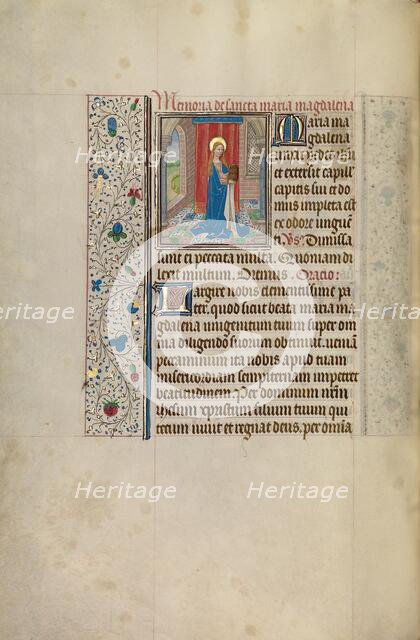 Memoria de sancta maria magdalena
Maria ma
gdalena
unxit pedes ihu
et extersit capill
capitis sui et do
mus impleta est
ex odore unguen
Dimissa
sunt ei peccata multa. Quoniam di
lexit multum. Oremus. Oracio:
Largire nobis clementissime pa
ter, quod sicut beata maria ma
gdalena unigenitum tuum super om
nia diligendo suorum obtinuit veniam
peccaminum ita nobis apud tuam
misericordiam sempiternam impetret
beatitudinem. Per dominum nrm
ihesum xpristum filium tuum qui
tecum vivit et regnat deus, per omnia
Heritage
Heritage
Heritage
Heritage
Heritage
Heritage
Heritage